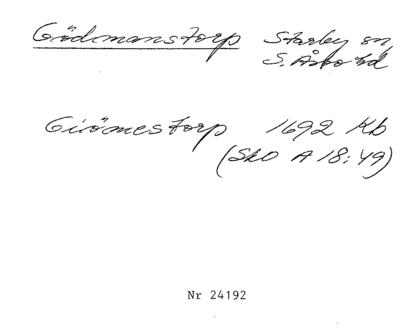 Gödmanstorp Starby sn,
S. Åsbo hd
Giömestorp 1692 Kb
(SkO A 18:49)
Nr 24192